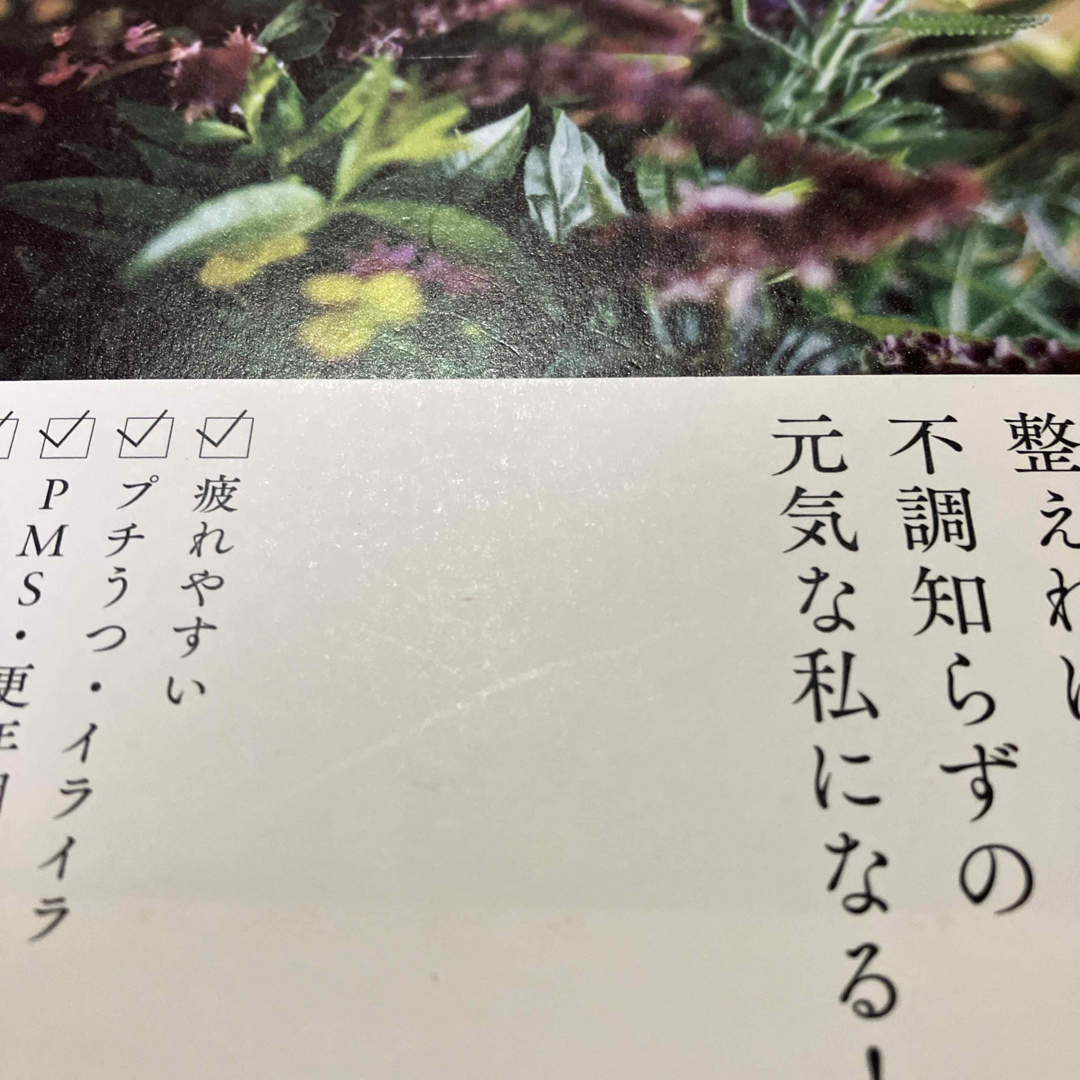 整えれば
不調知らずの
元気な私になる！
疲れやすい
プチうつ・イライラ
PMS・更年期